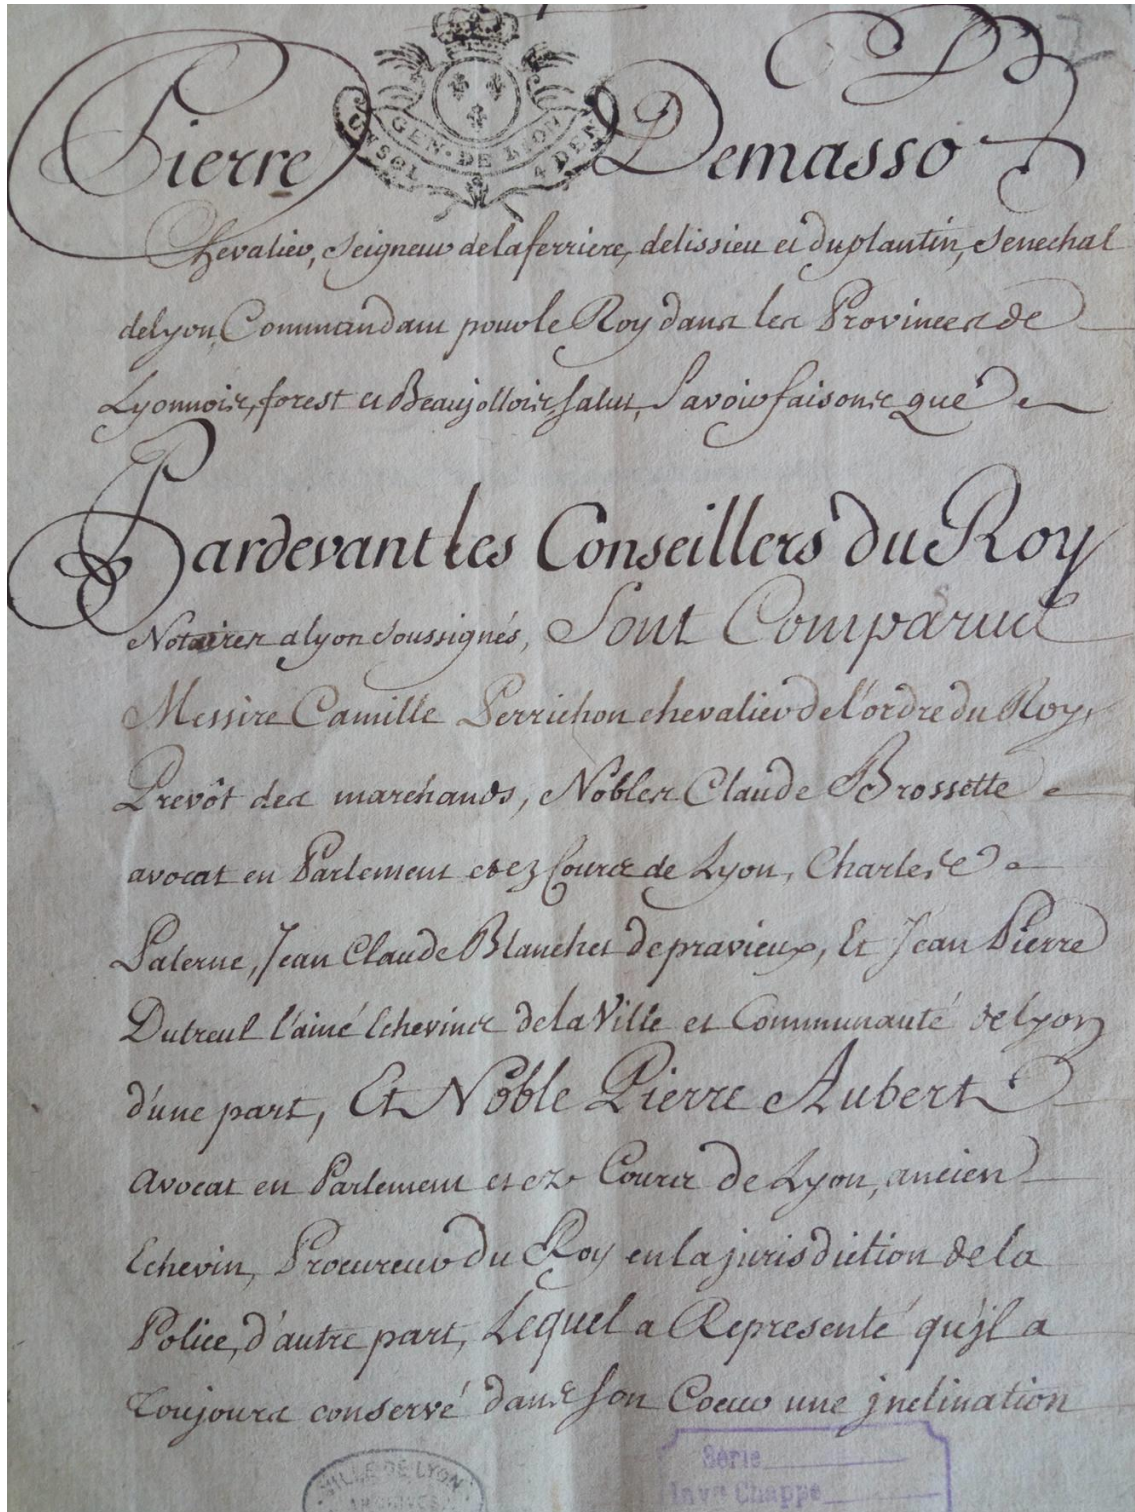 Pierre Demasso
GEN · DE LION
Chevalier, Seigneur delaferriere, delissieu et duplantin, Senechal
delyon, Commandant pour le Roy dans les Provinces de
Lyonnois, forest et Beaujollois salut, Savoir faisons que
Pardevant les Conseillers du Roy
Notaires a lyon soussignés, Sont Comparus
Messire Camille Perrichon chevalier de l'ordre du Roy,
Prevôt des marchands, Nobles Claude Brossette
avocat en Parlement et ez Cours de Lyon, Charles
Palerne, Jean Claude Blanchet depravieux, Et Jean Pierre
Dutreul l'ainé Echevins de la Ville et Communauté de lyon
d'une part, Et Noble Pierre Aubert
Avocat en Parlement et ez Cours de Lyon, ancien
Echevin, Procureur du Roy en la jurisdiction de la
Police, d'autre part, Lequel a Representé qu'jl a
Toujours conservé dans son Coeur une jnclination
VILLE DE LYON
ARCHIVES
Série
Invre Chappe